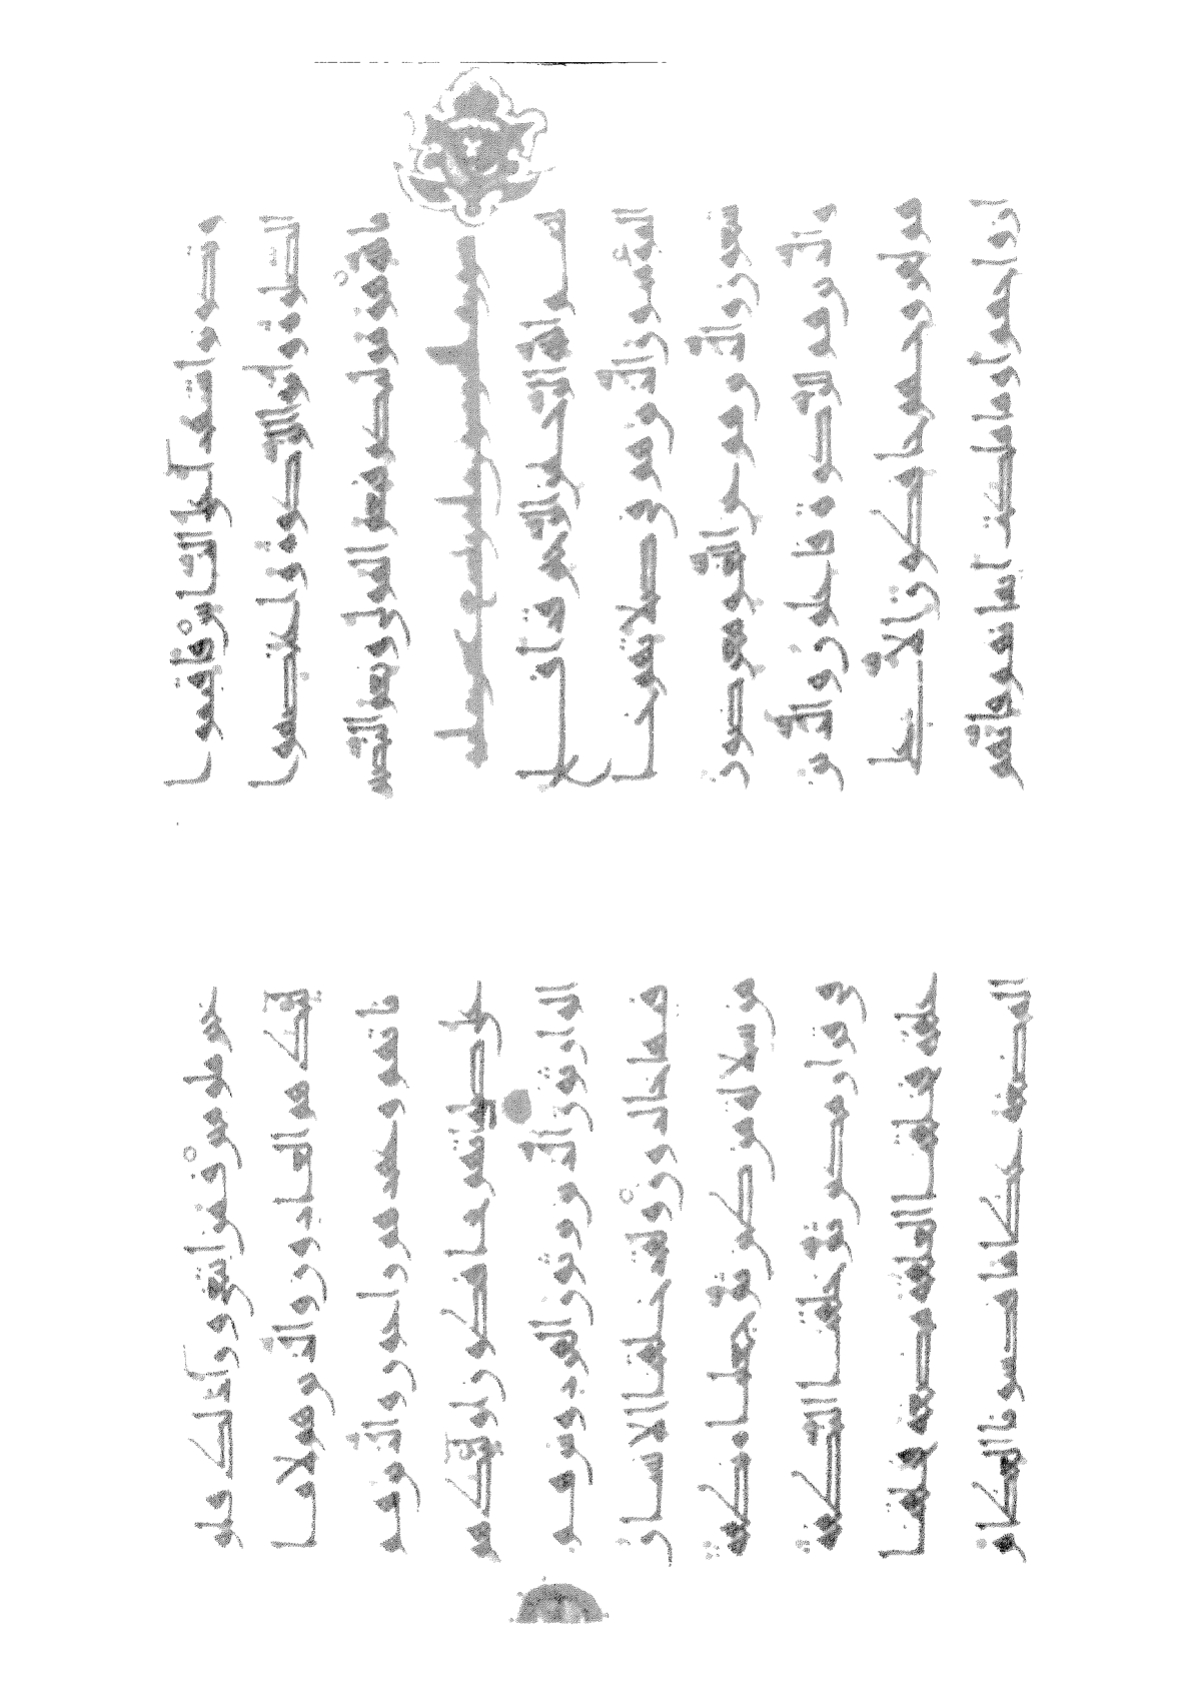 وتكونوا شهدا على الناس فاقيموا
الصلوة واتوا الزكوة واعتصموا
بالله هو موليكم فنعم المولى ونعم النصير
بسم الله الرحمن الرحيم قد افلح
المومنون الذين هم في صلاتهم خا
شعون والذين هم عن اللغو معرضون
والذين هم للزكوة فاعلون والذين
هم لفروجهم حافظون الا على
ازواجهم او ما ملكت ايمانهم فانهم
غير ملومين فمن ابتغى ورا ذلك فاو
لئك هم العادون والذين هم لاما
ناتهم وعهدهم راعون والذين هم
على صلواتهم يحافظون اولئك هم
الوارثون الذين يرثون الفردوس هم
فيها خالدون ولقد خلقنا الانسان
من سلالة من طين ثم جعلناه نطفة
في قرار مكين ثم خلقنا النطفة
علقة فخلقنا العلقة مضغة فخلقنا
المضغة عظاما فكسونا العظام